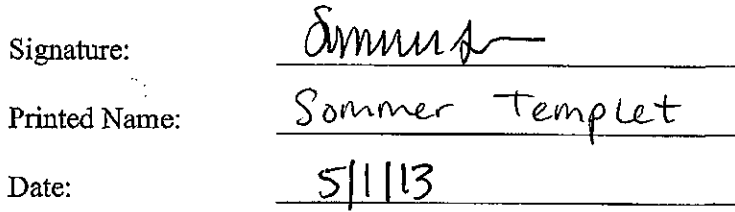 Signature:
Printed Name: Sommer Templet
Date: 5/1/13